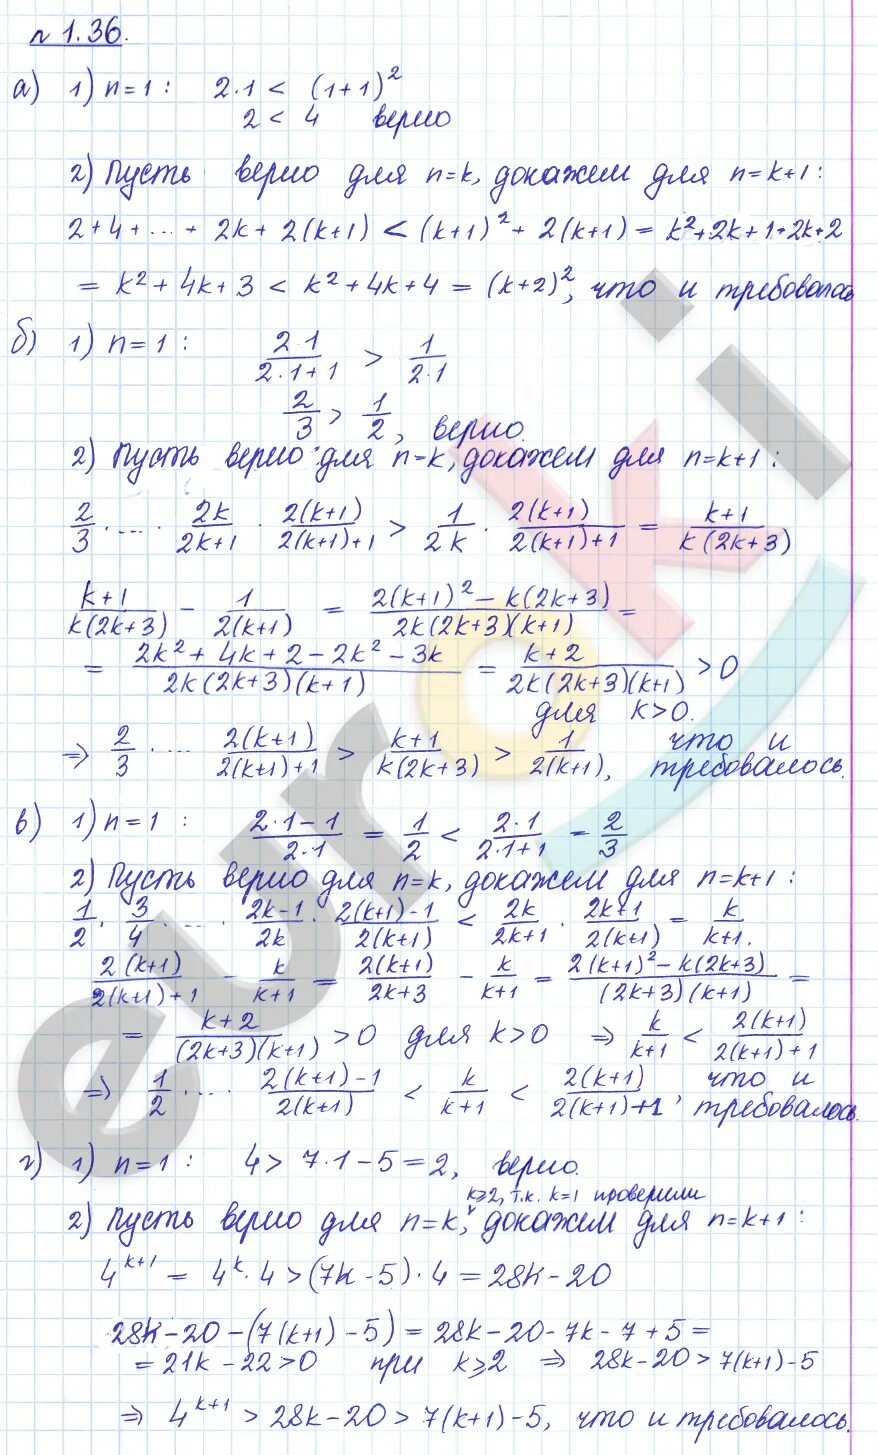 n 1.36.
а) 1) n=1 : 2·1 < (1+1)²
2 < 4 верно
2) Пусть верно для n=k, докажем для n=k+1 :
2+4+...+ 2k+ 2(k+1) < (k+1)²+ 2(k+1) = k²+2k+1+2k+2
= k²+4k+3 < k²+4k+4 = (k+2)², что и требовалось
б) 1) n=1 : (2·1)/(2·1+1) > 1/(2·1)
2/3 > 1/2, верно.
2) Пусть верно для n=k, докажем для n=k+1 :
2/3 · ... · 2k/(2k+1) · 2(k+1)/(2(k+1)+1) > 1/(2k) · 2(k+1)/(2(k+1)+1) = (k+1)/(k(2k+3))
(k+1)/(k(2k+3)) - 1/(2(k+1)) = (2(k+1)²-k(2k+3))/(2k(2k+3)(k+1)) =
= (2k²+4k+2-2k²-3k)/(2k(2k+3)(k+1)) = (k+2)/(2k(2k+3)(k+1)) > 0
для k>0.
⇒ 2/3 · ... 2(k+1)/(2(k+1)+1) > (k+1)/(k(2k+3)) > 1/(2(k+1)), что и
требовалось.
в) 1) n=1 : (2·1-1)/(2·1) = 1/2 < (2·1)/(2·1+1) = 2/3
2) Пусть верно для n=k, докажем для n=k+1 :
1/2 · 3/4 · ... · (2k-1)/(2k) · (2(k+1)-1)/(2(k+1)) < 2k/(2k+1) · (2k+1)/(2(k+1)) = k/(k+1).
2(k+1)/(2(k+1)+1) - k/(k+1) = 2(k+1)/(2k+3) - k/(k+1) = (2(k+1)²-k(2k+3))/((2k+3)(k+1)) =
= (k+2)/((2k+3)(k+1)) > 0 для k>0 ⇒ k/(k+1) < 2(k+1)/(2(k+1)+1)
⇒ 1/2 · ... (2(k+1)-1)/(2(k+1)) < k/(k+1) < 2(k+1)/(2(k+1)+1), что и
требовалось.
г) 1) n=1 : 4 > 7·1-5=2, верно.
k≥2, т.к. k=1 проверили
2) Пусть верно для n=k, докажем для n=k+1 :
4^(k+1) = 4^k·4 > (7k-5)·4 = 28k-20
28k-20-(7(k+1)-5) = 28k-20-7k-7+5 =
= 21k-22>0 при k≥2 ⇒ 28k-20 > 7(k+1)-5
⇒ 4^(k+1) > 28k-20 > 7(k+1)-5, что и требовалось.
euroki